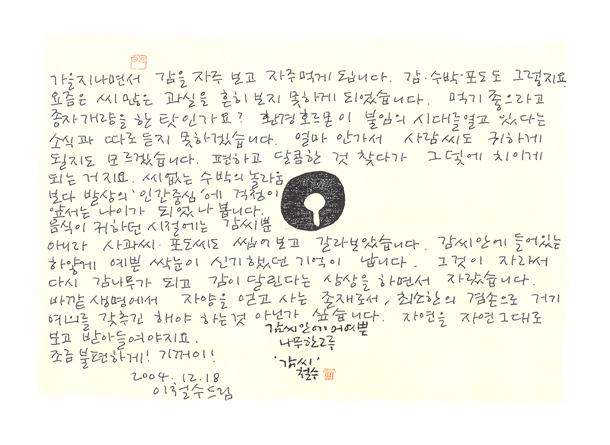 가을지나면서 감을 자주 보고 자주먹게 됩니다. 감·수박·포도도 그렇지요
요즘은 씨 많은 과실을 흔히 보지 못하게 되었습니다. 먹기 좋으라고
종자개량을 한 탓인가요? 환경호르몬이 불임의 시대를 열고 있다는
소식과 따로 듣지 못하겠습니다. 얼마 안가서 사람씨도 귀하게
될지도 모르겠습니다. 편하고 달콤한 것 찾다가 그덫에 치이게
되는 거지요. 씨없는 수박의 놀라움
보다 발상의 '인간중심'에 걱정이
앞서는 나이가 되었나 봅니다.
음식이 귀하던 시절에는 감씨뿐
아니라 사과씨·포도씨도 씹어보고 갈라보았습니다. 감씨안에 들어있는
하얗게 예쁜 싹눈이 신기했던 기억이 납니다. 그것이 자라서
다시 감나무가 되고 감이 달린다는 상상을 하면서 자랐습니다.
바깥 생명에서 자양을 얻고 사는 존재로서, 최소한의 겸손으로 거기
예의를 갖추긴 해야 하는것 아닌가 싶습니다. 자연을 자연그대로
보고 받아들여야지요.
조금 불편하게! 기꺼이!
2004.12.18
이철수드림
감씨안에 어여쁜
나무한그루
'감씨'
철수